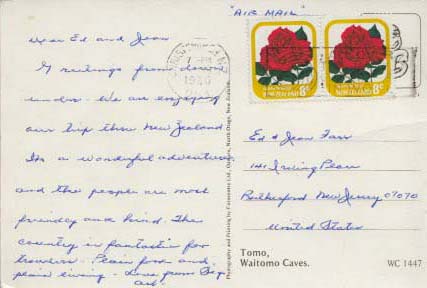 "AIR MAIL"
Dear Ed and Jean
Greetings from down
under. We are enjoying
our trip thru New Zealand
Its a wonderful adventure
and the people are most
friendly and kind. The
country is fantastic for
travelers. Plain food and
plain living - Love from
NEW ZEALAND 8c
NEW ZEALAND 8c
Ed & Jean Farr
141 Irving Place
Rutherford New Jersey 07070
United States
Photography and Printing by Colourama Ltd., North Otago, New Zealand.
Tomo,
Waitomo Caves.
WC 1447